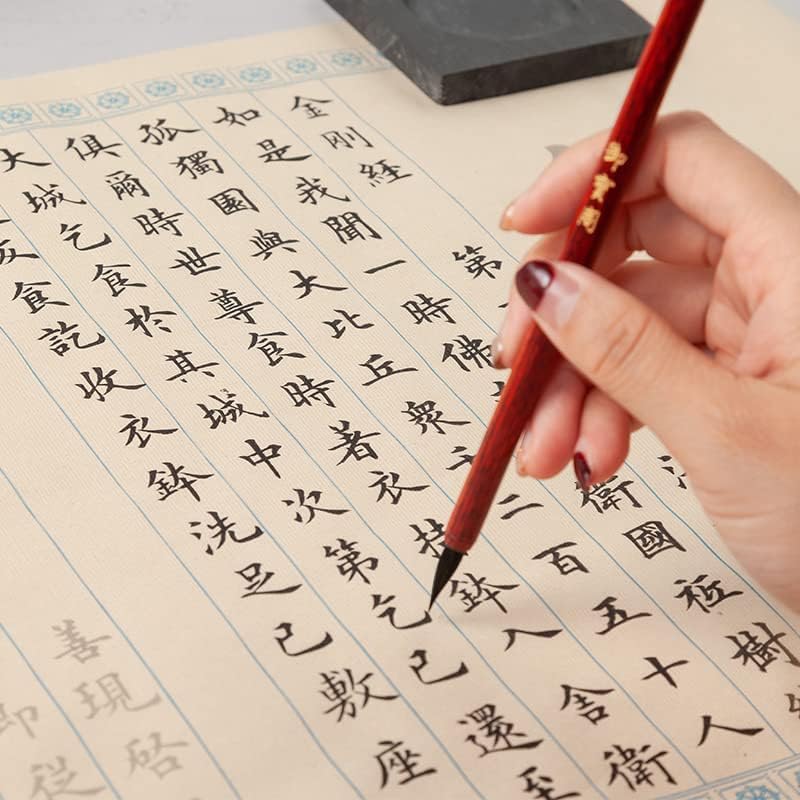 金剛經 第
如是我聞一時佛 衛國祗樹
孤獨園與大比丘眾千二百五十人
俱爾時世尊食時著衣持鉢入舍衛
大城乞食於其城中次第乞已還至
食訖收衣鉢洗足已敷座
善現啓
即從